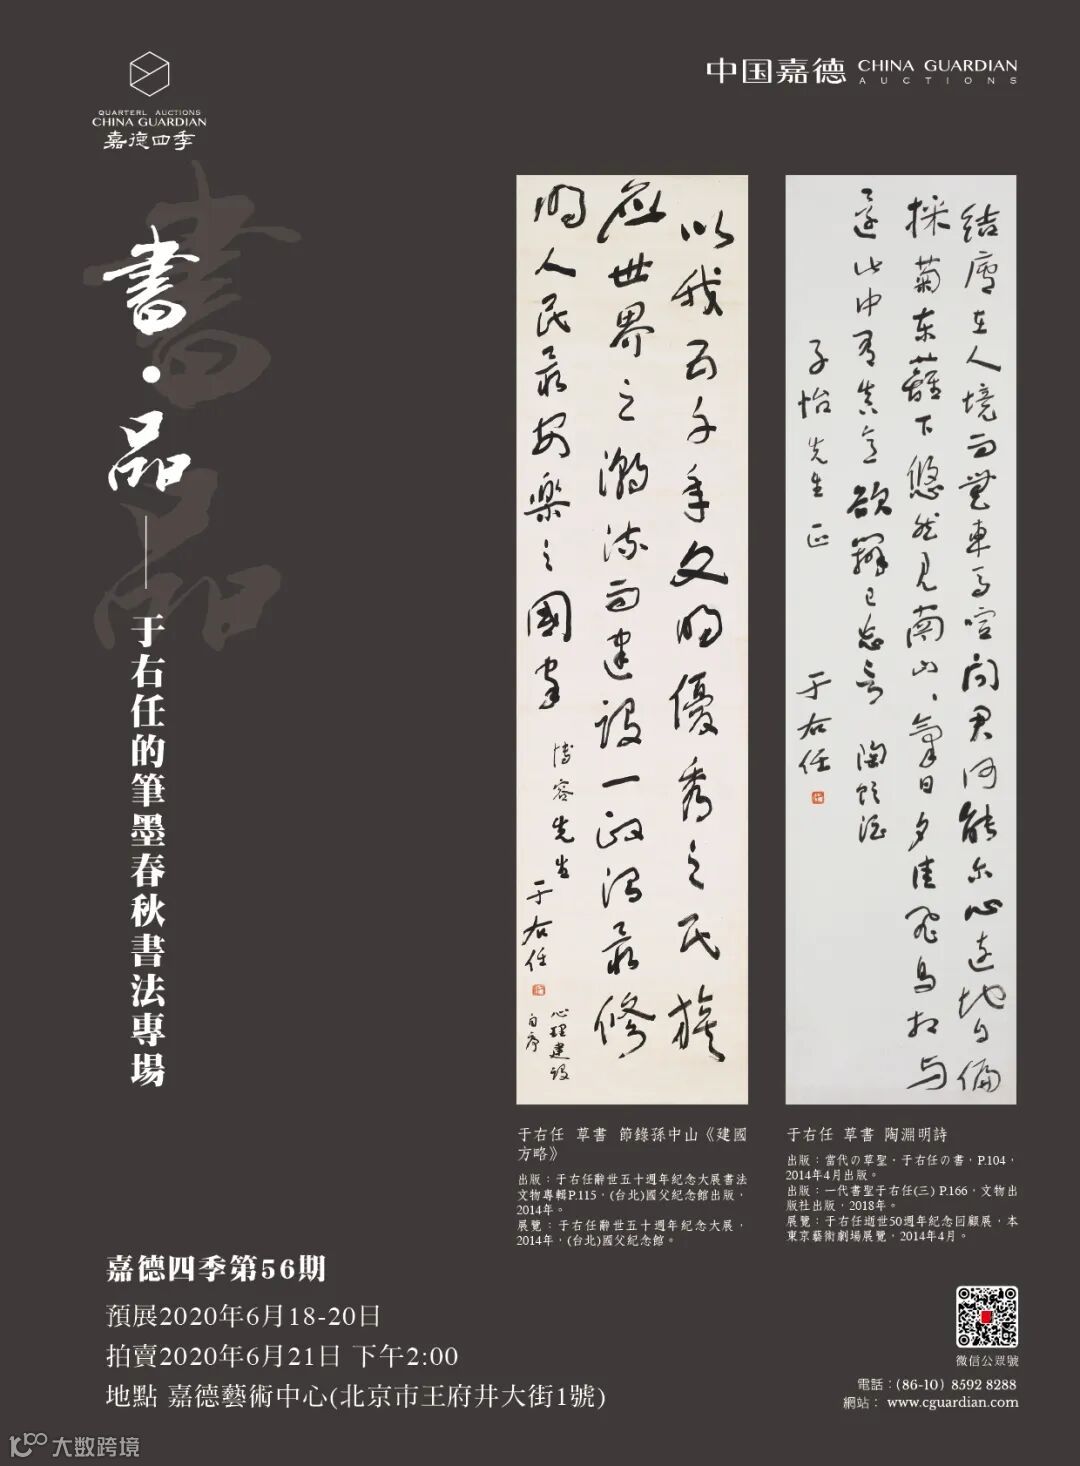 QUARTERL AUCTIONS
CHINA GUARDIAN
嘉德四季
中国嘉德 CHINA GUARDIAN
AUCTIONS
書·品
——于右任的筆墨春秋書法專場
以我五千年文明優秀之民族
應世界之潮流而建設一政治最修
明人民最安樂之國家
博容先生
于右任
心理建设
自序
结廬在人境而無車馬喧问君何能尔心遠地自偏
採菊东籬下悠然見南山、氣日夕佳飛鸟相与
還此中有真意欲辨已忘言 陶飲酒
子怡先生正
于右任
于右任 草書 節錄孫中山《建國
方略》
出版：于右任辭世五十週年紀念大展書法
文物專輯P.115，(台北)國父紀念館出版，
2014年。
展覽：于右任辭世五十週年紀念大展，
2014年，(台北)國父紀念館。
于右任 草書 陶淵明詩
出版：當代の草聖・于右任の書，P.104，
2014年4月出版。
出版：一代書聖于右任(三) P.166，文物出
版社出版，2018年。
展覽：于右任逝世50週年紀念回顧展，本
東京藝術劇場展覽，2014年4月。
嘉德四季第56期
預展2020年6月18-20日
拍賣2020年6月21日 下午2:00
地點 嘉德藝術中心(北京市王府井大街1號)
微信公眾號
電話：(86-10) 8592 8288
網站： www.cguardian.com
大数跨境